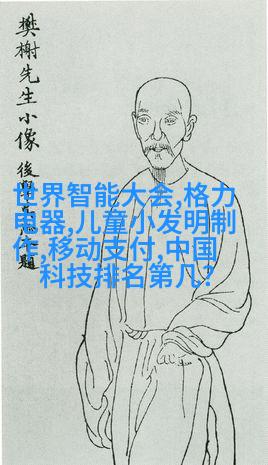 樊榭先生小像
後學
題
世界智能大会,格力
电器,儿童小发明制
作,移动支付,中国
科技排名第几？